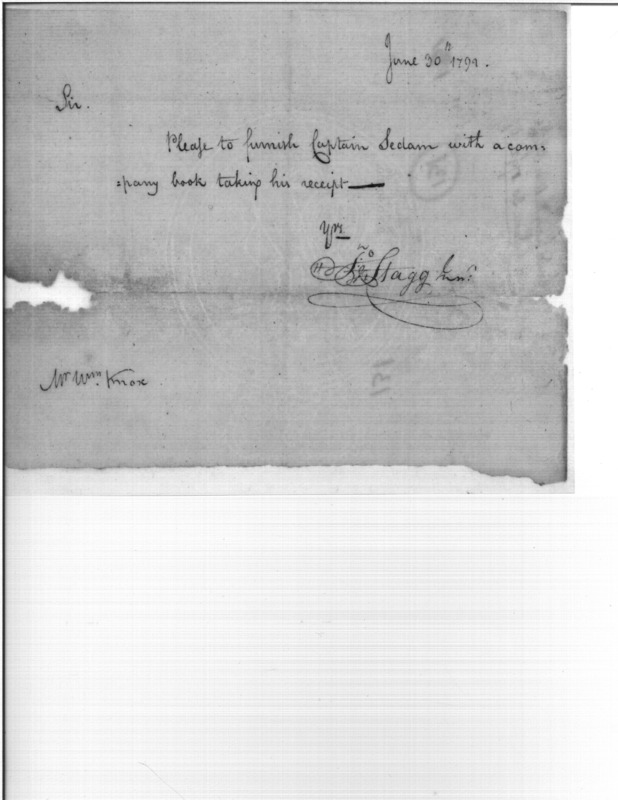 June 30th 1792.
Sir.
Please to furnish Captain Sedam with a com=
=pany book taking his receipt—
Yrs
Jno Stagg Junr
Mr Wm Knox
131